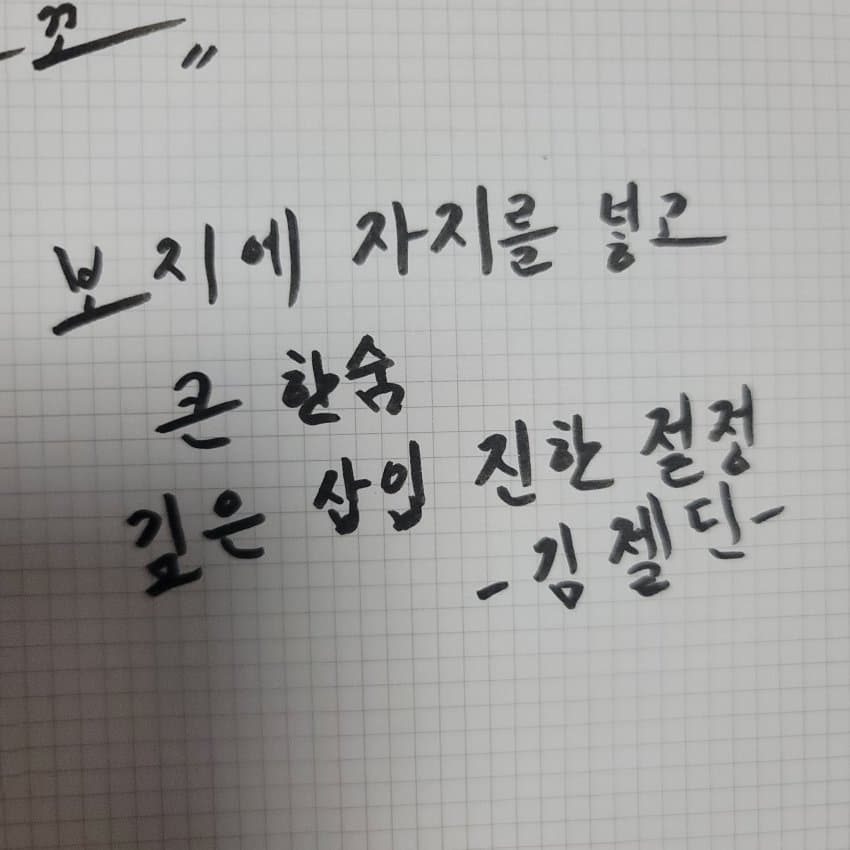 꼬 "
보지에 자지를 넣고
큰 한숨
깊은 삽입 진한 절정
-김젤딘-